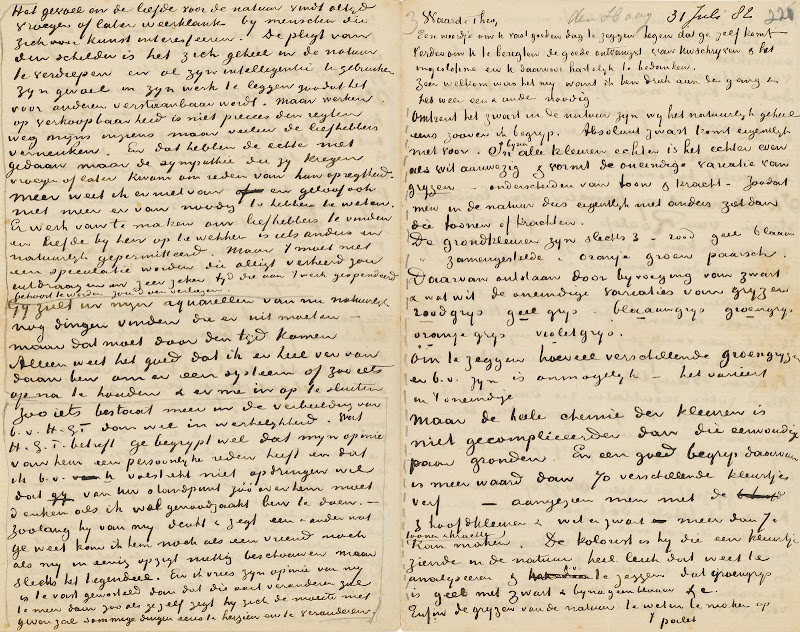 Het gevoel en de liefde voor de natuur vindt altijd
vroeger of later weerklank by menschen die
zich voor kunst interesseeren. De pligt van
den schilder is het zich geheel in de natuur
te verdiepen en al zyn intelligentie te gebruiken
zyn gevoel in zyn werk te leggen zoodat het
voor anderen verstaanbaar wordt. Maar werken
op verkoopbaarheid is niet precies den regten
weg myns inziens maar veeleer de liefhebbers
verneuken. En dat hebben de echte niet
gedaan maar de sympathie die zy kregen
vroeger of later kwam om reden van hun opregtheid.
meer weet ik er niet van en geloof ook
niet meer er van noodig te hebben te weten.
Er werk van te maken om liefhebbers te vinden
en liefde by hen op te wekken is iets anders en
natuurlyk gepermitteerd. Maar 't moet niet
een speculatie worden die allicht verkeerd zou
uitdraaien en zeer zeker tyd die aan 't werk gespendeerd
behoort te worden zou doen verliezen.
Gy zult in myn aquarellen van nu natuurlyk
nog dingen vinden die er uit moeten —
maar dat moet door den tyd komen
Alleen weet het goed dat ik er heel ver van
daan ben om er een systeem of zoo iets
op na te houden & er me in op te sluiten
Zoo iets bestaat meer in de verbeelding van
b.v. H.G.T dan wel in werkelykheid. Wat
H.G.T. betreft ge begrypt wel dat myn opinie
van hem een persoonlyke reden heeft en dat
ik b.v. volstrekt niet opdringen wil
dat gy van uw standpunt zóó over hem moet
denken als ik wel genoodzaakt ben te doen. —
Zoolang hy van my denkt & zegt een & ander wat
ge weet kan ik hem noch als een vriend noch
als my in eenig opzigt nuttig beschouwen maar
slechts het tegendeel. En ik vrees zyn opinie van my
is te vast geworteld dan dat die ooit veranderen zal
te meer daar zoo als ge zelf zegt hy zich de moeite niet
geven zal sommige dingen eens te herzien en te veranderen.
Waarde Theo, den Haag 31 Juli 82
Een woordje om U vast goeden dag te zeggen tegen dat ge zelf komt
Verder om U te berigten de goede ontvangst van Uw schryven & het
ingeslotene en U daarvoor hartelyk te bedanken.
Zeer welkom was het my want ik ben druk aan de gang &
het weer een & ander noodig
Omtrent het zwart in de natuur zyn wy het natuurlyk geheel
eens zooveel ik begryp. Absoluut zwart komt eigentlyk
niet voor. In byna alle kleuren echter is het echter even
als wit aanwezig & vormt de oneindige variatie van
gryzen — onderscheiden van toon & kracht. Zoodat
men in de natuur dus eigentlyk niet anders ziet dan
die toonen of krachten.
De grondkleuren zyn slechts 3 — rood geel blaauw
" zamengestelde " oranje groen paarsch.
Daarvan ontstaan door byvoeging van zwart
& wat wit de oneindige variaties van gryzen
roodgrys geel grys — blaauwgrys groengrys
oranje grys violetgrys.
Om te zeggen hoeveel verschillende groengryzen
er b.v. zyn is onmogelyk — het varieert
in 't oneindige
Maar de heele chemie der kleuren is
niet gecompliceerder dan die eenvoudige
paar gronden. En een goed begrip daarvan
is meer waard dan 70 verschillende kleurtjes
verf — aangezien men met de
3 hoofdkleuren & wit & zwart meer dan 70
toonen & krachten kan maken. De kolorist is hy die een kleurtje
ziende in de natuur heel leuk dat weet te
analyseeren & b.v. te zeggen dat groengrys
is geel met zwart & byna geen blaauw &c.
Enfin de gryzen van de natuur te weten te maken op
't palet